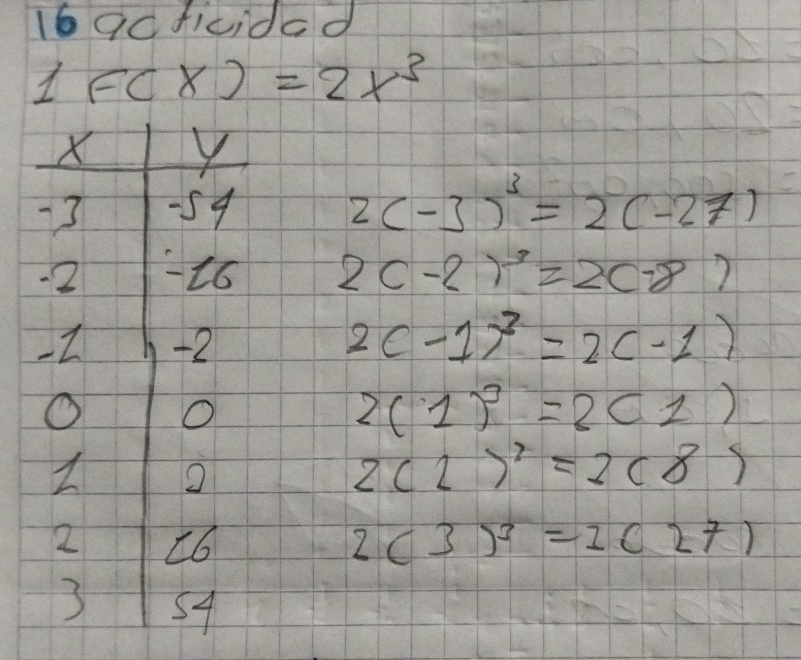 16 acticidad
1 F(X) = 2x³
x y
-3 -54 2(-3)³ = 2(-27)
-2 -16 2(-2)³ = 2(-8)
-1 -2 2(-1)³ = 2(-1)
0 0 2(1)³ = 2(1)
1 2 2(2)³ = 2(8)
2 16 2(3)³ = 2(27)
3 54